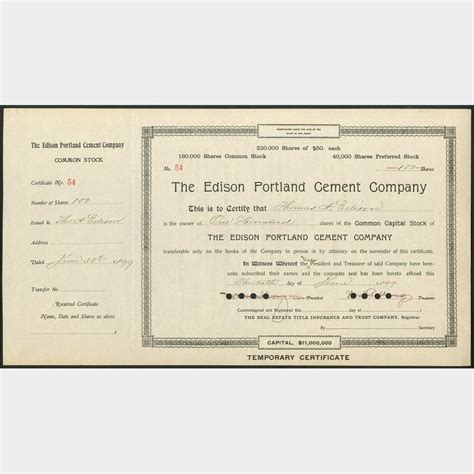 The Edison Portland Cement Company
COMMON STOCK
Certificate No. 54
Number of Shares 100
Issued to Thos A Edison
Address
Dated June 30th 1899
Transfer No.
Received Certificate
Name, Date and Shares as above
INCORPORATED UNDER THE LAWS OF THE
STATE OF NEW JERSEY
220,000 SHARES OF $50. each
180,000 Shares Common Stock 40,000 Shares Preferred Stock
No. 54 100 Shares
The Edison Portland Cement Company
This is to Certify that Thomas A Edison
is the owner of One Hundred shares of the Common Capital Stock of
THE EDISON PORTLAND CEMENT COMPANY
transferable only on the books of the Company in person or by attorney on the surrender of this certificate.
In Witness Whereof the Vice President and Treasurer of said Company have here-
unto subscribed their names and the corporate seal has been hereto affixed this
Thirtieth day of June 1899
Vice-President Treasurer
Countersigned and Registered this day of
THE REAL ESTATE TITLE INSURANCE AND TRUST COMPANY, Registrar
By Secretary
CAPITAL, $11,000,000
TEMPORARY CERTIFICATE